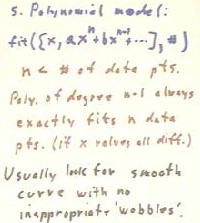 5. Polynomial model:
fit({x, ax^n+bx^{n-1}+...}, #)
n < # of data pts.
Poly. of degree n-1 always
exactly fits n data
pts. (if x values all diff.)
Usually look for smooth
curve with no
inappropriate 'wobbles'.